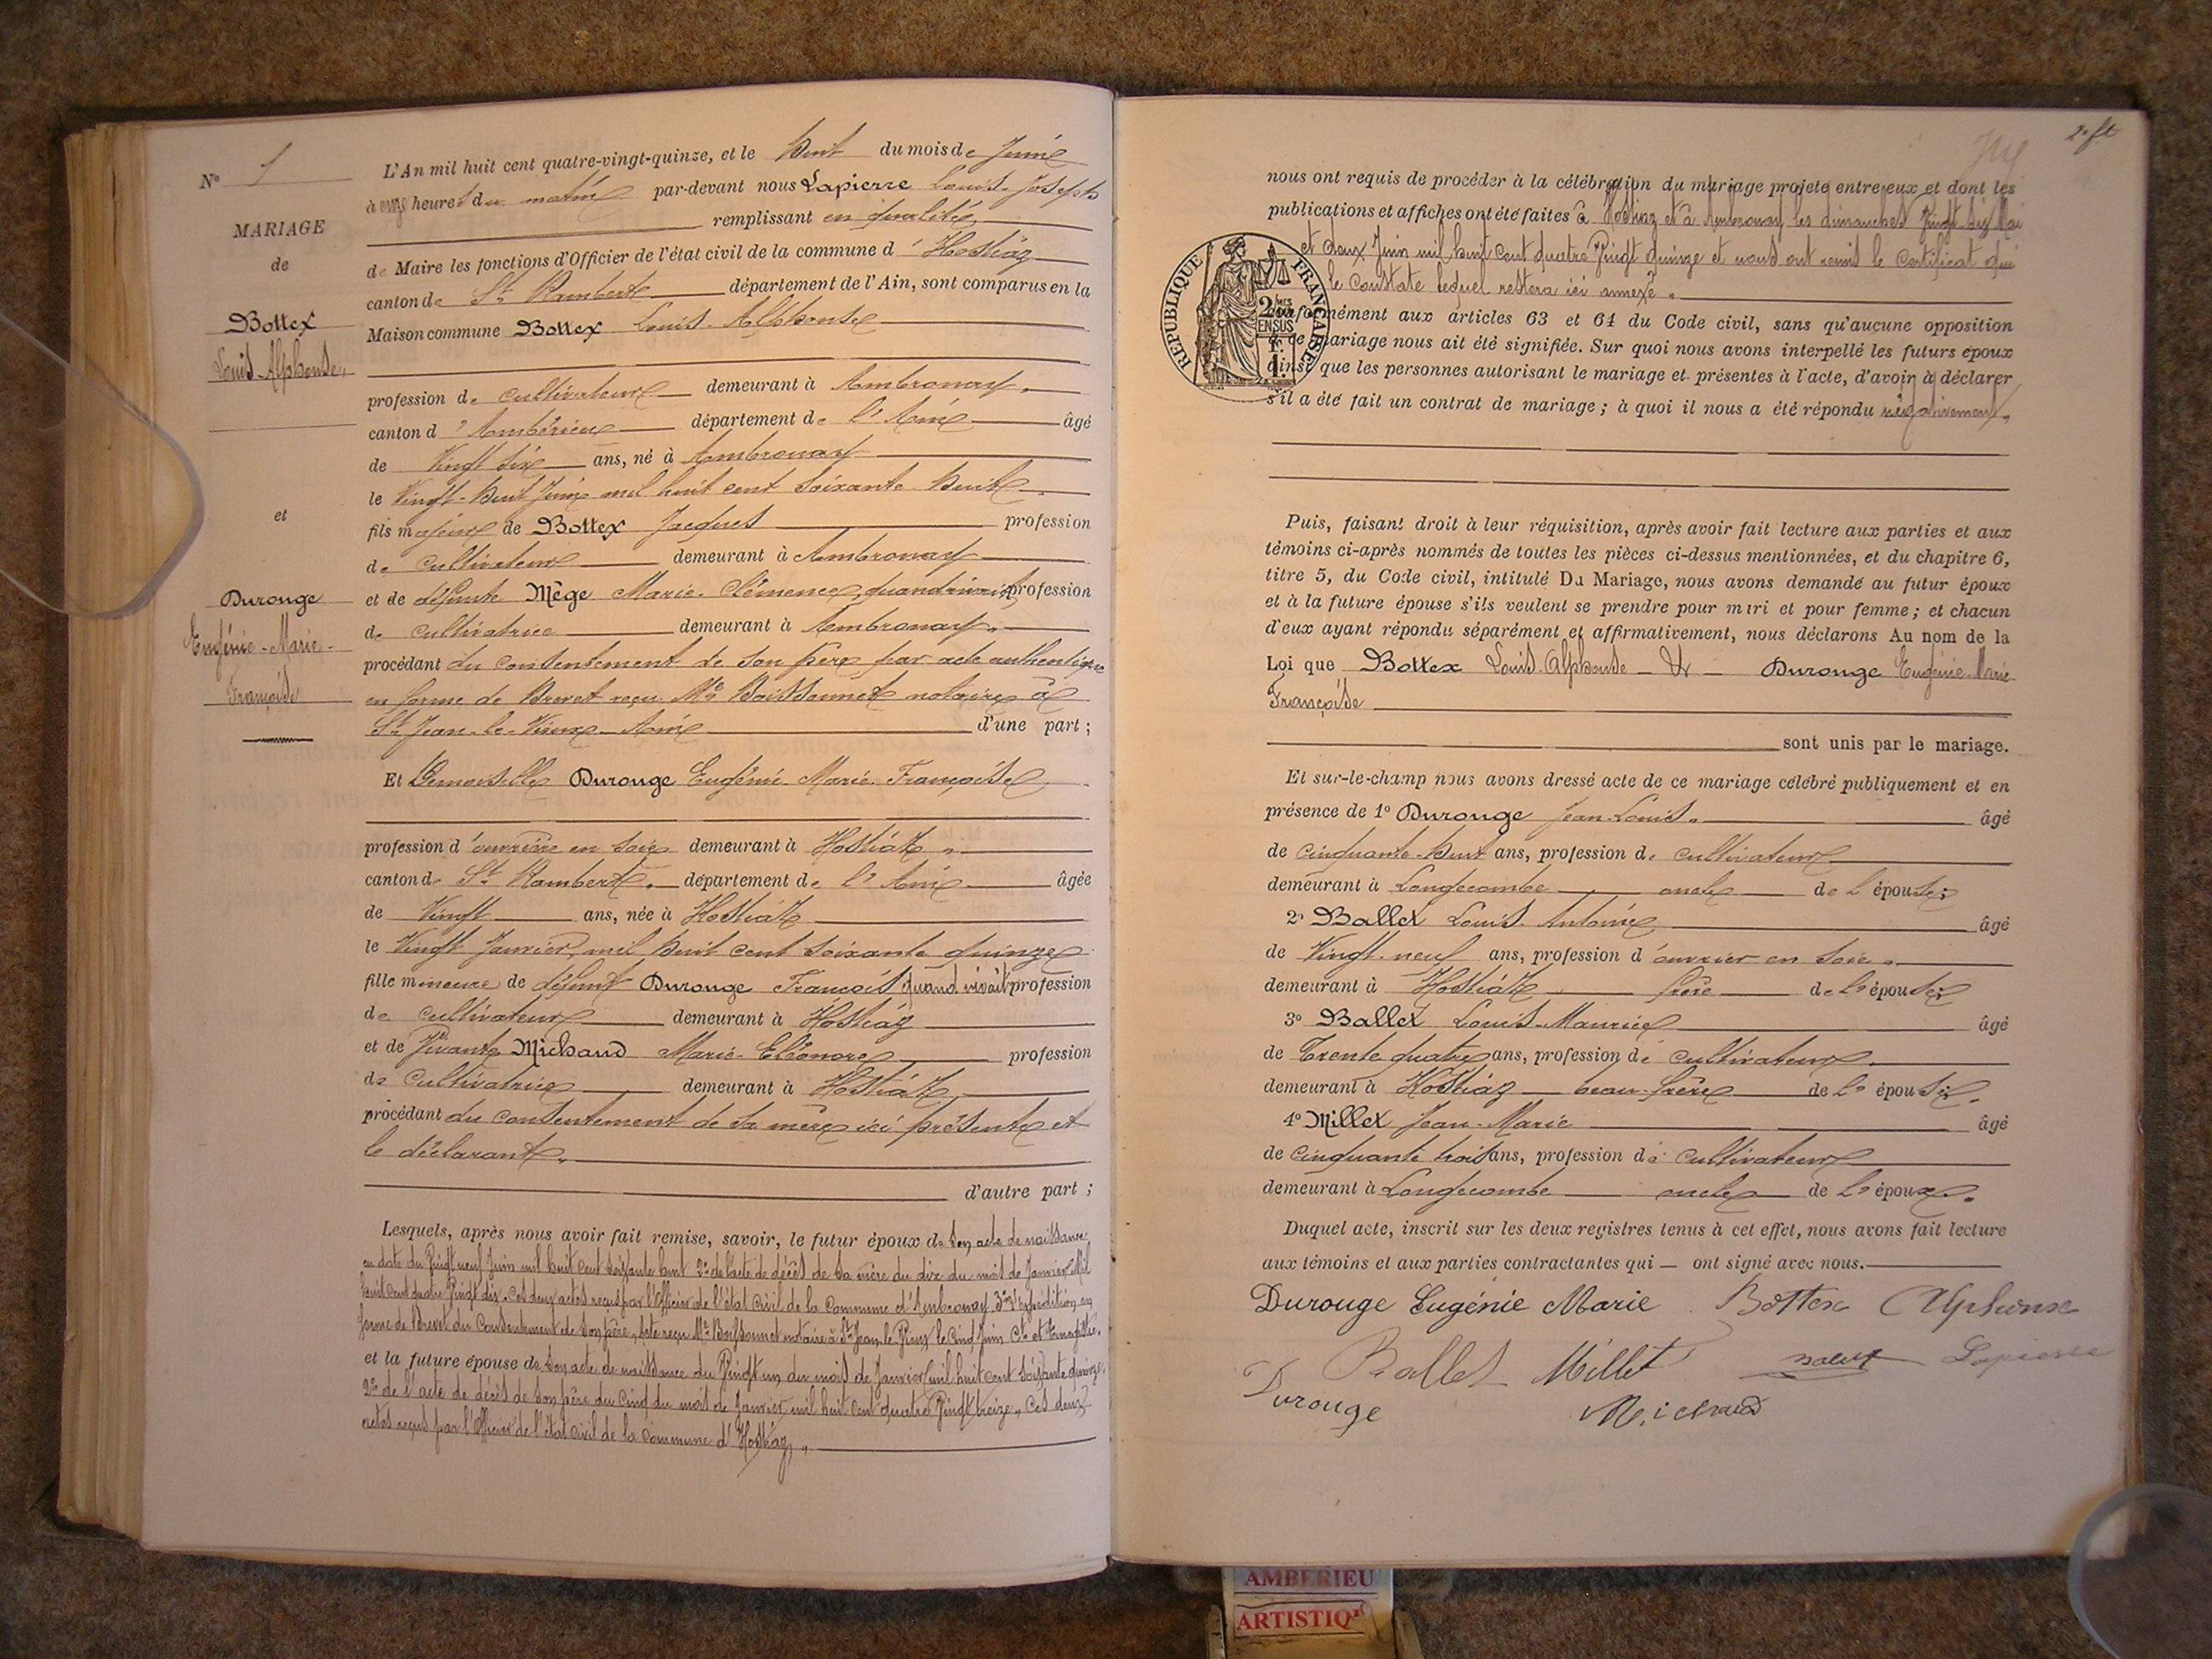 N° 1
MARIAGE
de
Bottex
Louis-Alphonse
et
Durouge
Eugénie-Marie-
Françoise
L'An mil huit cent quatre-vingt-quinze, et le huit du mois de Juin
à onze heures du matin par-devant nous Lapierre Louis-Joseph
remplissant en qualité
de Maire les fonctions d'Officier de l'état civil de la commune d'Hostiaz
canton de St Rambert département de l'Ain, sont comparus en la
Maison commune Bottex Louis-Alphonse
profession de cultivateur demeurant à Ambronay.
canton d'Ambérieu département de l'Ain âgé
de Vingt six ans, né à Ambronay
le Vingt-huit Juin mil huit cent soixante huit.
fils majeur de Bottex Jacques profession
de cultivateur demeurant à Ambronay
et de défunte Mège Marie-Clémence, quand vivait profession
de cultivatrice demeurant à Ambronay.
procédant du consentement de son père par acte authentique
en forme de Brevet reçu Me Boissonnet notaire à
St Jean-le-Vieux Ain d'une part ;
Et Demoiselle Durouge Eugénie Marie Françoise
profession d'ouvrière en soie demeurant à Hostiaz.
canton de St Rambert. département de l'Ain âgée
de Vingt ans, née à Hostiaz
le Vingt Janvier mil huit cent soixante quinze
fille mineure de défunt Durouge François quand vivait profession
de cultivateur demeurant à Hostiaz
et de Vivante Michaud Marie-Eléonore profession
de cultivatrice demeurant à Hostiaz
procédant du consentement de sa mère ici présente et
le déclarant.
d'autre part ;
Lesquels, après nous avoir fait remise, savoir, le futur époux de son acte de naissance
en date du Vingt neuf Juin mil huit cent soixante huit 2° de l'acte de décès de sa mère du dix du mois de Janvier Mil
huit cent quatre Vingt dix. Ces deux actes reçus par l'Officier de l'état civil de la Commune d'Ambronay 3° l'expédition en
forme de Brevet du Consentement de son père, acte reçu Me Boissonnet notaire à St Jean le Vieux le Cinq Juin Ct et Enregistré.
et la future épouse de son acte de naissance du Vingt un du mois de Janvier mil huit cent soixante quinze.
2° de l'acte de décès de son père du cinq du mois de Janvier mil huit cent quatre Vingt treize. Ces deux
actes reçus par l'Officier de l'état civil de la Commune d'Hostiaz.
2e ft
nous ont requis de procéder à la célébration du mariage projeté entre eux et dont les
publications et affiches ont été faites à Hostiaz et à Ambronay les dimanches Vingt six Mai
et deux Juin mil huit cent quatre Vingt quinze et nous ont remis le certificat qui
le constate lequel restera ici annexé.
RÉPUBLIQUE FRANÇAISE
conformément aux articles 63 et 64 du Code civil, sans qu'aucune opposition
à ce mariage nous ait été signifiée. Sur quoi nous avons interpellé les futurs époux
ainsi que les personnes autorisant le mariage et présentes à l'acte, d'avoir à déclarer
s'il a été fait un contrat de mariage ; à quoi il nous a été répondu négativement.
Puis, faisant droit à leur réquisition, après avoir fait lecture aux parties et aux
témoins ci-après nommés de toutes les pièces ci-dessus mentionnées, et du chapitre 6,
titre 5, du Code civil, intitulé Du Mariage, nous avons demandé au futur époux
et à la future épouse s'ils veulent se prendre pour mari et pour femme ; et chacun
d'eux ayant répondu séparément et affirmativement, nous déclarons Au nom de la
Loi que Bottex Louis-Alphonse & Durouge Eugénie-Marie
Françoise
sont unis par le mariage.
Et sur-le-champ nous avons dressé acte de ce mariage célébré publiquement et en
présence de 1° Durouge Jean-Louis. âgé
de cinquante-huit ans, profession de cultivateur
demeurant à Longecombe oncle de l'épouse;
2° Ballet Louis-Antoine âgé
de Vingt-neuf ans, profession d'ouvrier en soie.
demeurant à Hostiaz frère de l'épouse;
3° Ballet Louis-Maurice âgé
de Trente quatre ans, profession de cultivateur
demeurant à Hostiaz beau-frère de l'épouse.
4° Millet Jean-Marie âgé
de cinquante trois ans, profession de cultivateur
demeurant à Longecombe oncle de l'époux.
Duquel acte, inscrit sur les deux registres tenus à cet effet, nous avons fait lecture
aux témoins et aux parties contractantes qui — ont signé avec nous.
Durouge Eugénie Marie Bottex Alphonse
Ballet Millet Ballet Lapierre
Durouge Michaud
AMBERIEU
ARTISTIQ